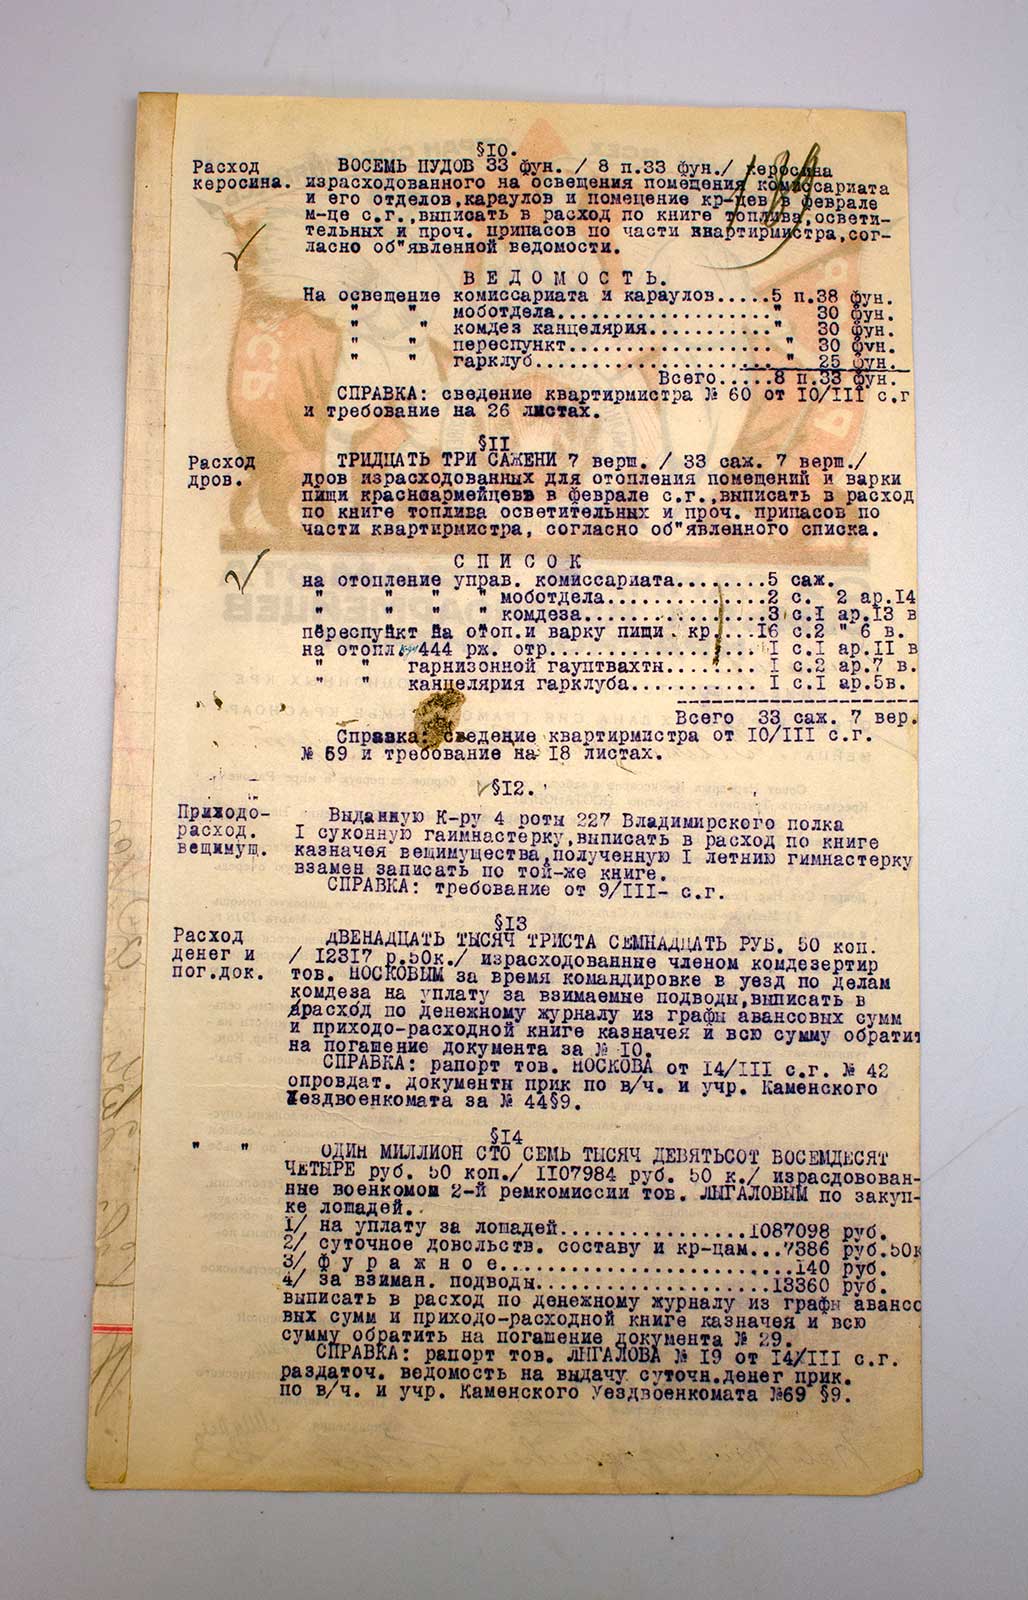 §10.
Расход керосина.
ВОСЕМЬ ПУДОВ 33 фун. / 8 п.33 фун./ керосина
израсходованного на освещения помещения комиссариата
и его отделов,караулов и помещение кр-цев в феврале
м-це с.г.,выписать в расход по книге топлива,освети-
тельных и проч. припасов по части квартирмистра,сог-
ласно об"явленной ведомости.
В Е Д О М О С Т Ь.
На освещение комиссариата и караулов.....5 п.38 фун.
" " моботдела..................." 30 фун.
" " комдез канцелярия..........." 30 фун.
" " переспункт.................." 30 фун.
" " гарклуб....................." 25 фун.
Всего.....8 п.33 фун.
СПРАВКА: сведение квартирмистра № 60 от 10/III с.г
и требование на 26 листах.
§II
Расход дров.
ТРИДЦАТЬ ТРИ САЖЕНИ 7 верш. / 33 саж. 7 верш./
дров израсходованных для отопления помещений и варки
пищи красноармейцев в феврале с.г.,выписать в расход
по книге топлива осветительных и проч. припасов по
части квартирмистра, согласно об"явленного списка.
С П И С О К
на отопление управ. комиссариата........5 саж.
" " " " моботдела..............2 с. 2 ар.14
" " " " комдеза................3 с.I ар.13 в
переспункт на отоп.и варку пищи кр....16 с.2 " 6 в.
на отопл. 444 рж. отр...................I с.I ар.II в
" " гарнизонной гауптвахтн........I с.2 ар.7 в.
" " канцелярия гарклуба...........I с.I ар.5в.
Всего 33 саж. 7 вер.
Справка: сведение квартирмистра от 10/III с.г.
№ 69 и требование на 18 листах.
§12.
Приходо-
расход.
вещимущ.
Выданную К-ру 4 роты 227 Владимирского полка
I суконную гаимнастерку,выписать в расход по книге
казначея вещимущества,полученную I летнию гимнастерку
взамен записать по той-же книге.
СПРАВКА: требование от 9/III- с.г.
§13
Расход
денег и
пог.док.
ДВЕНАДЦАТЬ ТЫСЯЧ ТРИСТА СЕМНАДЦАТЬ РУБ. 50 коп.
/ 12317 р.50к./ израсходованные членом комдезертир
тов. НОСКОВЫМ за время командировке в уезд по делам
комдеза на уплату за взимаемые подводы,выписать в
расход по денежному журналу из графы авансовых сумм
и приходо-расходной книге казначея и всю сумму обратит
на погашение документа за № 10.
СПРАВКА: рапорт тов. НОСКОВА от 14/III с.г. № 42
опровдат. документы прик по в/ч. и учр. Каменского
Уездвоенкомата за № 44§9.
§14
" "
ОДИН МИЛЛИОН СТО СЕМЬ ТЫСЯЧ ДЕВЯТЬСОТ ВОСЕМДЕСЯТ
ЧЕТЫРЕ руб. 50 коп./ 1107984 руб. 50 к./ израсдовован-
ные военкомом 2-й ремкомиссии тов. ЛЫГАЛОВЫМ по закуп-
ке лошадей.
1/ на уплату за лошадей................1087098 руб.
2/ суточное довольств. составу и кр-цам...7386 руб.50к
3/ ф у р а ж н о е...........................140 руб.
4/ за взиман. подводы....................13360 руб.
выписать в расход по денежному журналу из графы авансо
вых сумм и приходо-расходной книге казначея и всю
сумму обратить на погашение документа № 29.
СПРАВКА: рапорт тов. ЛЫГАЛОВА № 19 от 14/III с.г.
раздаточ. ведомость на выдачу суточн.денег прик.
по в/ч. и учр. Каменского Уездвоенкомата №69 §9.